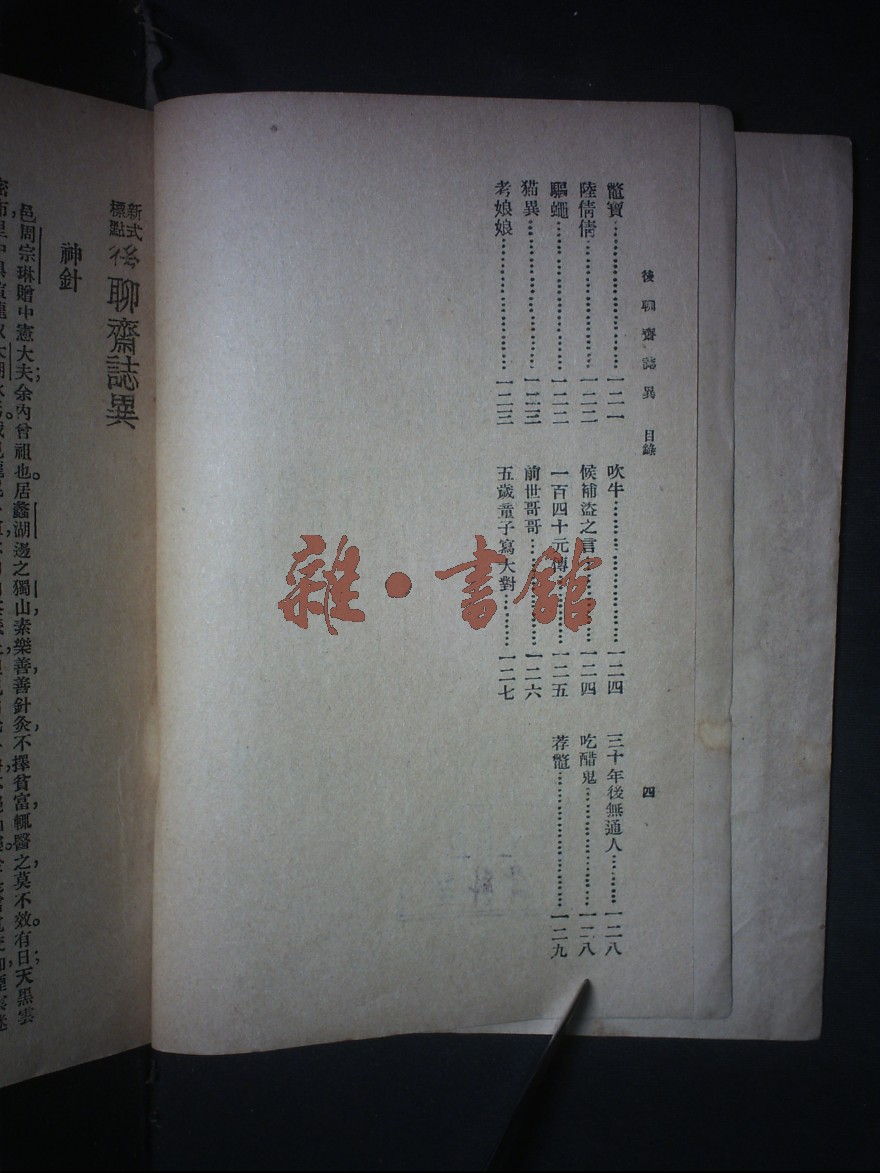 後聊齋誌異 目錄 四
鼈寶…………一二一
陸倩倩…………一二二
驅蠅…………一二二
猫異…………一二三
考娘娘…………一二三
吹牛…………一二四
候補盜之言…………一二四
一百四十元傳…………一二五
前世哥哥…………一二六
五歲童子寫大對…………一二七
三十年後無通人…………一二八
吃醋鬼…………一二八
荐鼈…………一二九
雜·書館
新式標點後聊齋誌異
神針
邑周宗琳贈中憲大夫;余內曾祖也。居蠡湖邊之獨山,素樂善,善針灸,不擇貧富,輒醫之,莫不效。有日,天黑雲